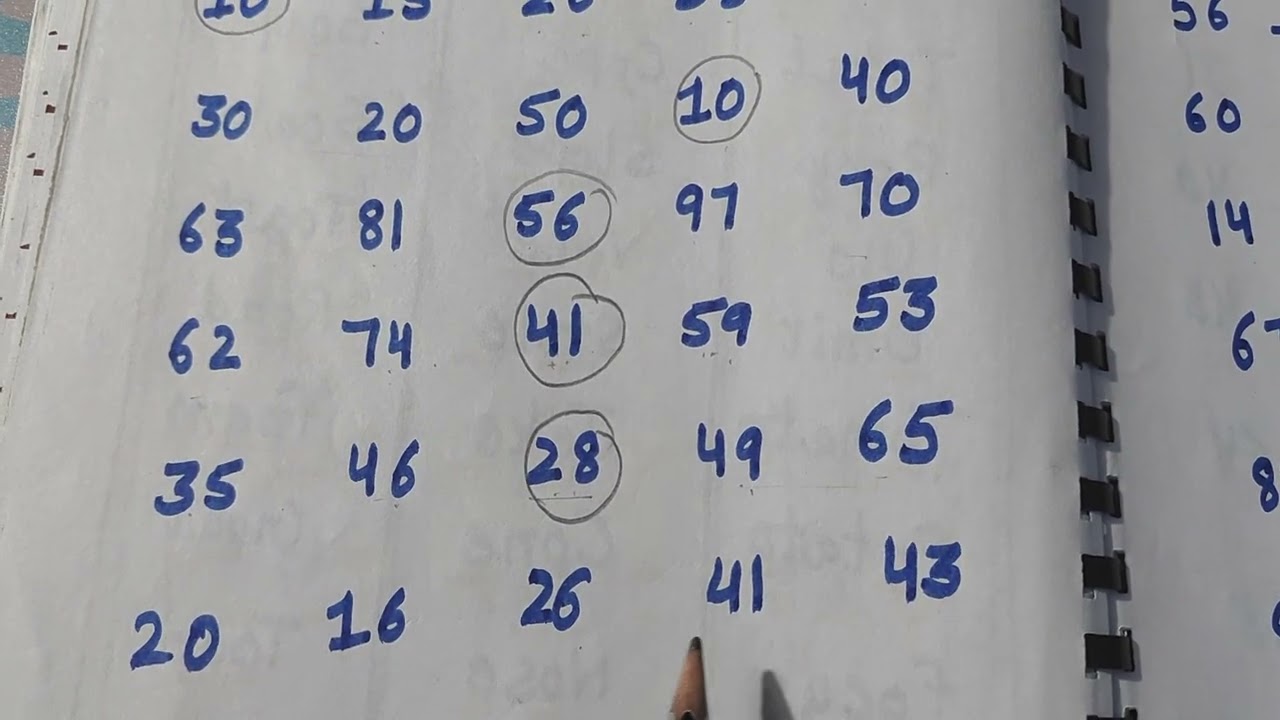 10 15 20
30 20 50 10 40
63 81 56 97 70
62 74 41 59 53
35 46 28 49 65
20 16 26 41 43
56
60
14